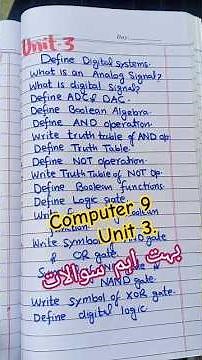 Unit 3
Day:
Define Digital systems.
What is an Analog Signal?
What is digital Signal?
Define ADC & DAC.
Define Boolean Algebra.
Define AND operation.
Write truth table of AND op
Define Truth Table.
Define NOT operation.
Write Truth Table of NOT Op.
Define Boolean functions
Define Logic gate.
Computer 9
Unit 3.
Write Symbol gate
& OR gate
بہت اہم سوالات
NAND gate.
Write symbol of XOR gate.
Define digital logic.